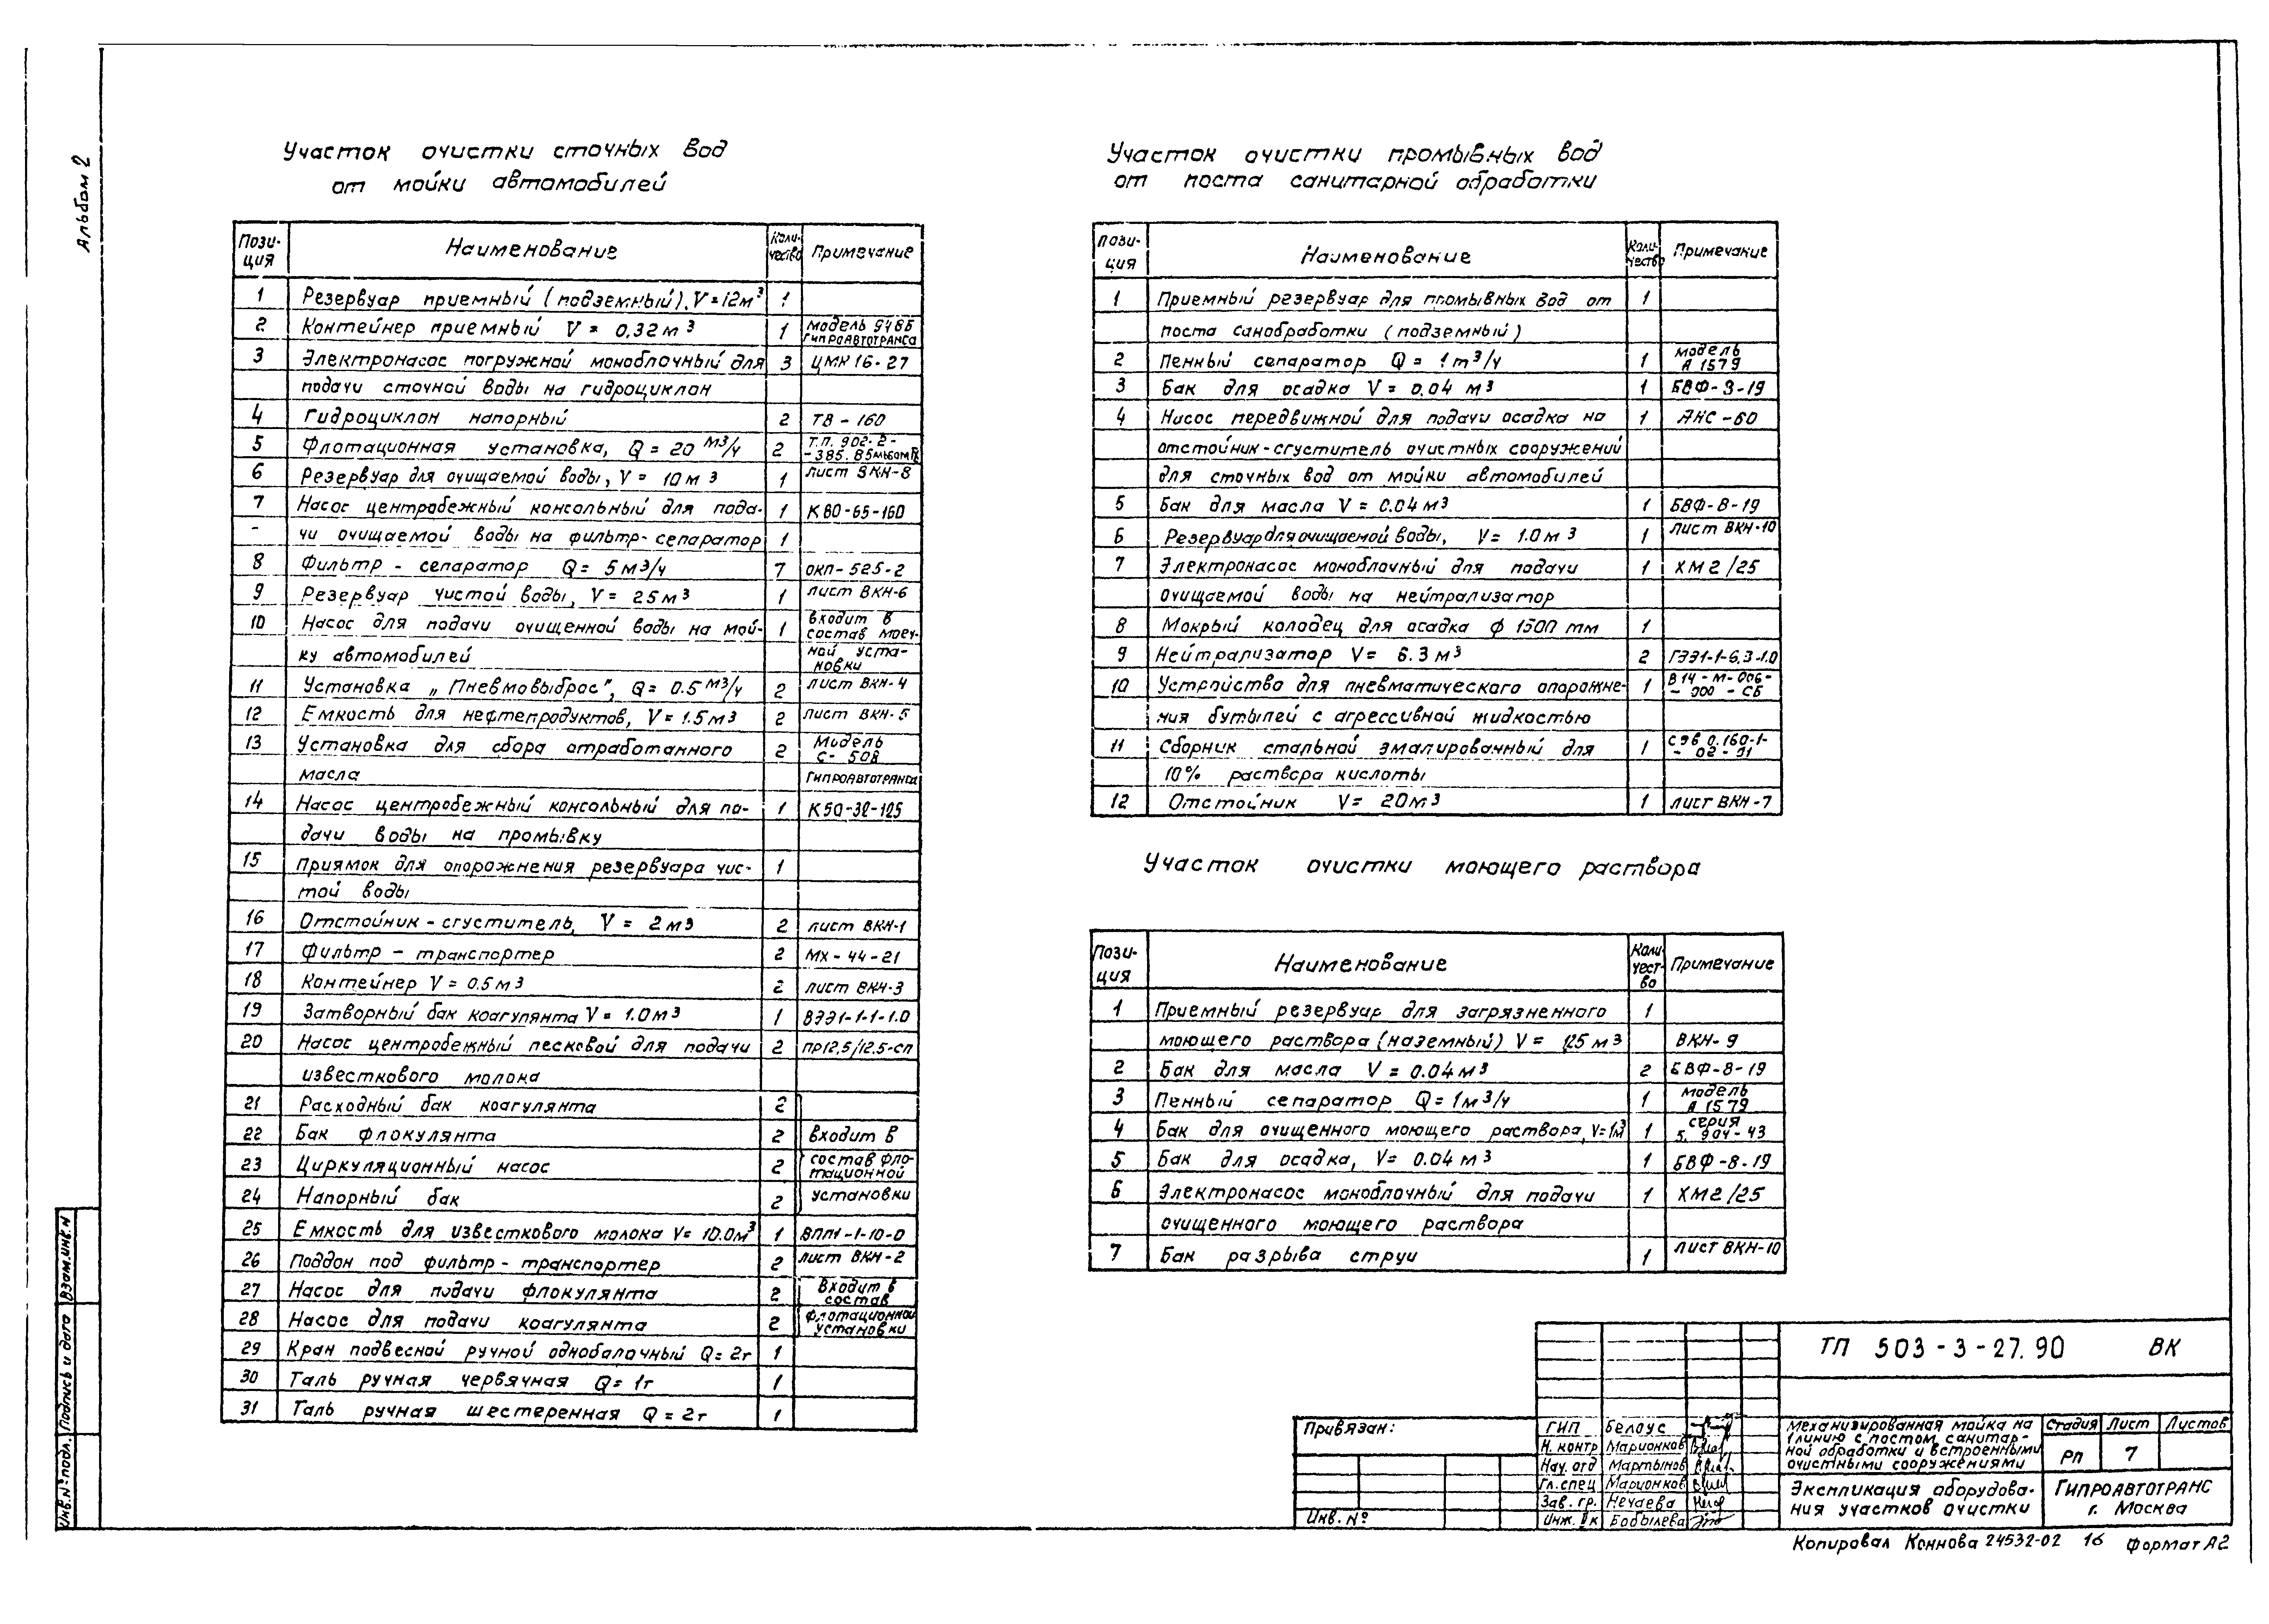 Альбом 2
Участок очистки сточных вод
от мойки автомобилей
Пози-
ция
Наименование
Коли-
чество
Примечание
1 Резервуар приемный (подземный). V = 12м³ 1
2 Контейнер приемный V = 0,32 м³ 1 модель 9486 Гипроавтотранса
3 Электронасос погружной моноблочный для 3 ЦМК 16-27
подачи сточной воды на гидроциклон
4 Гидроциклон напорный 2 ТВ - 160
5 Флотационная установка, Q = 20 м3/ч 2 Т.П. 902-2-
-385.85
6 Резервуар для очищаемой воды, V = 10 м³ 1 лист ВКН-8
7 Насос центробежный консольный для пода- 1 К80-65-160
- чи очищаемой воды на фильтр-сепаратор 1
8 Фильтр - сепаратор Q = 5 м³/ч 7 ОКП-525-2
9 Резервуар чистой воды, V = 25 м³ 1 лист ВКН-6
10 Насос для подачи очищенной воды на мой- 1 входит в
состав моеч-
ку автомобилей ной уста-
новки
11 Установка „Пневмовыброс", Q = 0.5 м3/ч 2 лист ВКН-4
12 Емкость для нефтепродуктов, V = 1.5 м³ 2 лист ВКН-5
13 Установка для сбора отработанного 2 Модель
С-508
масла Гипроавтотранса
14 Насос центробежный консольный для по- 1 К50-32-125
дачи воды на промывку
15 Приямок для опорожнения резервуара чис- 1
той воды
16 Отстойник - сгуститель, V = 2 м³ 2 лист ВКН-1
17 Фильтр - транспортер 2 МХ-44-21
18 Контейнер V = 0.5 м³ 2 лист ВКН-3
19 Затворный бак коагулянта V = 1.0 м³ 1 ВЭЭ1-1-1-1.0
20 Насос центробежный песковой для подачи 2 ПР12,5/12,5-СП
известкового молока
21 Расходный бак коагулянта 2
22 Бак флокулянта 2 входит в
23 Циркуляционный насос 2 состав фло-
тационной
24 Напорный бак 2 установки
25 Емкость для известкового молока V = 10.0м³ 1 ВПП1-1-10-0
26 Поддон под фильтр - транспортер 2 лист ВКН-2
27 Насос для подачи флокулянта 2 Входит в
состав
28 Насос для подачи коагулянта 2 флотационной
установки
29 Кран подвесной ручной однобалочный Q = 2т 1
30 Таль ручная червячная Q = 1т 1
31 Таль ручная шестеренная Q = 2т 1
Участок очистки промывных вод
от поста санитарной обработки
Пози-
ция
Наименование
Коли-
чество
Примечание
1 Приемный резервуар для промывных вод от 1
поста санобработки (подземный)
2 Пенный сепаратор Q = 1 m³/ч 1 модель
А 1579
3 Бак для осадка V = 0.04 м³ 1 БВФ-3-19
4 Насос передвижной для подачи осадка на 1 АНС-60
отстойник-сгуститель очистных сооружений
для сточных вод от мойки автомобилей
5 Бак для масла V = 0.04 м³ 1 БВФ-8-19
6 Резервуар для очищаемой воды, V = 1.0 м³ 1 лист ВКН-10
7 Электронасос моноблочный для подачи 1 ХМ 2/25
очищаемой воды на нейтрализатор
8 Мокрый колодец для осадка ф 1500 мм 1
9 Нейтрализатор V = 6.3 м³ 2 ГЭЭ1-1-6,3-1.0
10 Устройство для пневматического опорожне- 1 В14-М-006-
-000-СБ
ния бутылей с агрессивной жидкостью
11 Сборник стальной эмалировачный для 1 СЭв 0.160-1-
-02-91
10% раствора кислоты
12 Отстойник V = 20 м³ 1 лист ВКН-7
Участок очистки моющего раствора
Пози-
ция
Наименование
Коли-
чест-
во
Примечание
1 Приемный резервуар для загрязненного 1
моющего раствора (наземный) V = 1,25 м³ ВКН-9
2 Бак для масла V = 0.04 м³ 2 БВФ-8-19
3 Пенный сепаратор Q = 1м³/ч 1 модель
А 1579
4 Бак для очищенного моющего раствора, V=1м³ 1 серия
5. 904-43
5 Бак для осадка, V = 0.04 м³ 1 БВФ-8-19
6 Электронасос моноблочный для подачи 1 ХМ2/25
очищенного моющего раствора
7 Бак разрыва струи 1 лист ВКН-10
Взам.инв.N
Подпись и дата
Инв.N°подл.
ТП 503-3-27.90 ВК
Привязан:
Инв. N°
ГИП Белоус
Н. контр Марионков
Нач. отд Мартынов
Гл.спец Марионков
Зав. гр. Нечаева
Инж. Iк Бобылева
Механизированная мойка на
1 линию с постом санитар-
ной обработки и встроенными
очистными сооружениями
Стадия Лист Листов
Рп 7
Экспликация оборудова-
ния участков очистки
Гипроавтотранс
г. Москва
Копировал Коннова 24532-02 16 Формат А2